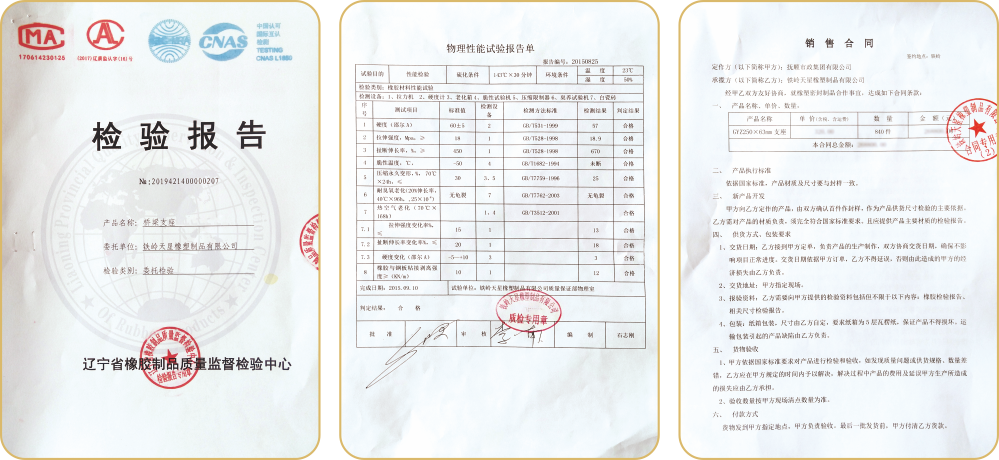 MA
170614230125
AL
(2017)辽质监认字(101)号
CNAS
中国认可
国际互认
检测
TESTING
CNAS L1880
检验报告
№:2019421400000207
产品名称: 桥梁支座
委托单位: 铁岭天星橡塑制品有限公司
检验类别: 委托检验
辽宁省橡胶制品质量监督检验中心
物理性能试验报告单
报告编号: 20150825
试验目的 性能检验 硫化条件 143℃×30分钟 环境条件 温度 23℃
湿度 50%
检验类别: 橡胶材料性能试验
序号 测试项目 标准值 检测设备 检测方法标准 检测结果 判定结果
1 硬度(邵尔A) 60±5 2 GB/T531-1999 57 合格
2 拉伸强度, Mpa, ≥ 18 1 GB/T528-1998 18.9 合格
3 扯断伸长率, %, ≥ 450 1 GB/T528-1998 670 合格
4 脆性温度, ℃, -50 4 GB/T1682-1994 未断 合格
5 压缩永久变形, %, 70℃×24h, ≤ 30 3、5 GB/T7759-1996 25 合格
6 耐臭氧老化(20%伸长率, 40℃×96h, 无龟裂 7 GB/T7762-2003 无龟裂 合格
7 热空气老化(70℃×168h) 1、4 GB/T3512-2001
7.1 拉伸强度变化率%, ≤ 15 1 13 合格
7.2 扯断伸长率变化率%, ≤ 20 1 18 合格
7.3 硬度变化(邵尔A) -5—+10 3 3 合格
8 橡胶与钢板粘接剥离强度≥(KN/m) 10 1 12 合格
完成日期: 2015.09.10 试验单位: 铁岭天星橡塑制品有限公司质量保证部物理室
判定结果: 合 格
质检专用章
批 准 审 核 编 制 石志刚
销售合同
签约地点: 铁岭
定作方(以下简称甲方): 抚顺市政集团有限公司
承揽方(以下简称乙方): 铁岭天星橡塑制品有限公司
经甲乙双方友好协商, 就橡塑密封制品合作事宜, 达成如下合同条款:
一、 产品名称、单价、数量。
产品名称 单价(含税、含运费) 数 量 金 额
GYZ250×63mm支座 840件
本合同总金额:
二、 产品执行标准
依据国家标准, 产品材质及尺寸要与封样一致。
三、 新产品开发
甲方向乙方定作的产品, 由双方确认首件封样, 作为产品供货尺寸检验的主要依据。
乙方需对产品的材质负责, 须完全符合国家标准要求, 且应提供产品主要材质的检验报告。
四、 供货方式、包装要求
1、交货日期: 乙方接到甲方定单, 负责产品的生产制作, 双方协商交货日期, 确保不影
响项目正常进度。交货日期依据甲方订单, 乙方不得延误, 否则由此造成的甲方的经
济损失由乙方负责。
2、交货地址: 甲方指定现场。
3、报验资料: 乙方需要向甲方提供的检验资料包括但不限于以下内容: 橡胶检验报告、
相关尺寸检验报告。
4、包装: 纸箱包装, 尺寸由乙方自定, 要求纸箱为5层瓦楞纸, 保证产品不得损坏。运
输包装引起的产品缺陷由乙方负责。
五、 货物验收
1、甲方依据国家标准要求对产品进行检验和验收, 如发现质量问题或供货规格、数量差
错, 乙方应在甲方规定的时间内予以解决, 解决过程中产品的费用及延误甲方生产所造成
的损失应由乙方承担。
2、验收数量按甲方现场清点数量为准。
六、 付款方式
货物发到甲方指定地点, 甲方负责验收。最后一批发货前, 甲方付清乙方货款。